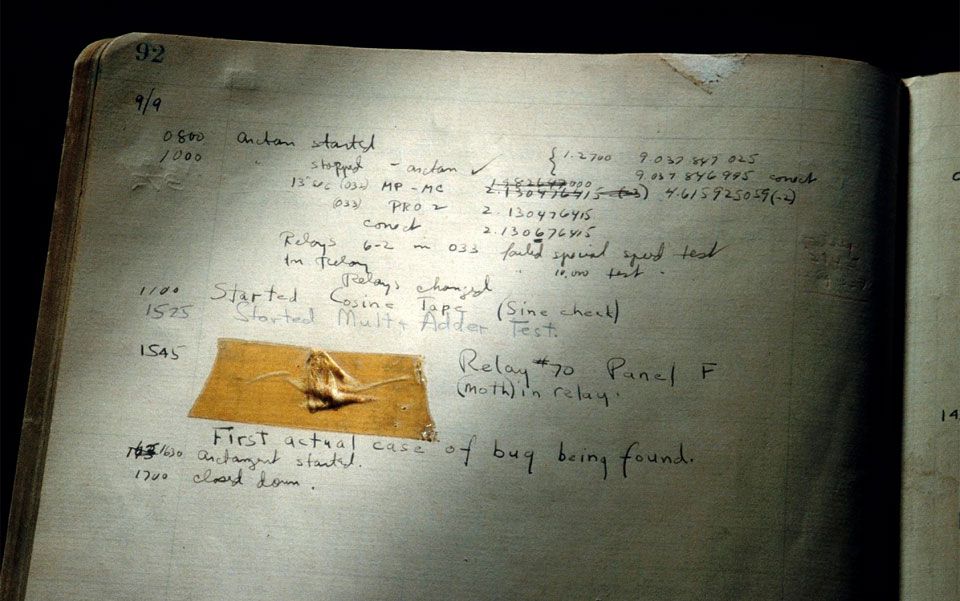 92
9/9
0800 arctan started
1000 " stopped - arctan ✓ { 1.2700 9.037 847 025
9.037 846 995 correct
13"uc (032) MP - MC 2.130476415 (-3) 4.615925059(-2)
(033) PRO 2 2.130476415
correct 2.130676415
Relays 6-2 in 033 failed special speed test
In Relay " 10.000 test "
Relays changed
1100 Started Cosine Tape (Sine check)
1525 Started Mult + Adder Test.
1545 Relay #70 Panel F
(moth) in relay.
First actual case of bug being found.
1630 arctangent started.
1700 closed down.